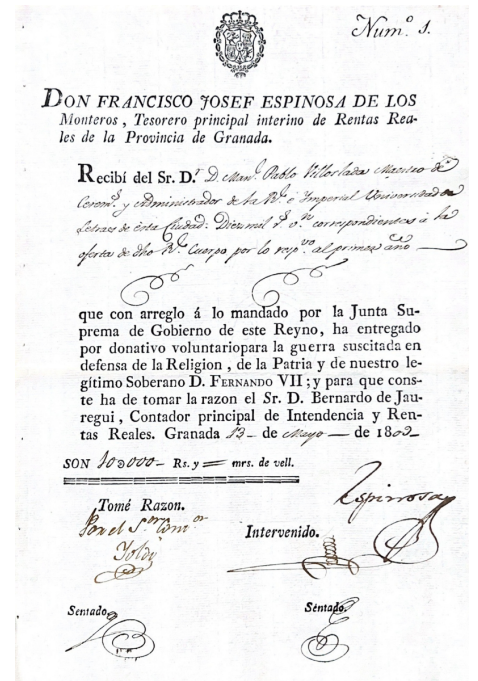 Num.º 1.
DON FRANCISCO JOSEF ESPINOSA DE LOS
Monteros, Tesorero principal interino de Rentas Rea-
les de la Provincia de Granada.
Recibí del Sr. D.r D Man.l Pablo Villoslada Maestro de
Cerem.s y Administrador de la R.l e Imperial Universidad de
Letras de esta Ciudad: Diez mil r.s v.n correspondientes à la
oferta de dho R.l Cuerpo por lo resp.vo al primer año
que con arreglo á lo mandado por la Junta Su-
prema de Gobierno de este Reyno, ha entregado
por donativo voluntariopara la guerra suscitada en
defensa de la Religion, de la Patria y de nuestro le-
gítimo Soberano D. FERNANDO VII; y para que cons-
te ha de tomar la razon el Sr. D. Bernardo de Jau-
regui, Contador principal de Intendencia y Ren-
tas Reales. Granada 13 de Mayo de 1809
SON 10000 Rs. y = mrs. de vell.
Espinosa
Tomé Razon.
Por el S.or Com.or
Intervenido.
Sentado.
Sentado